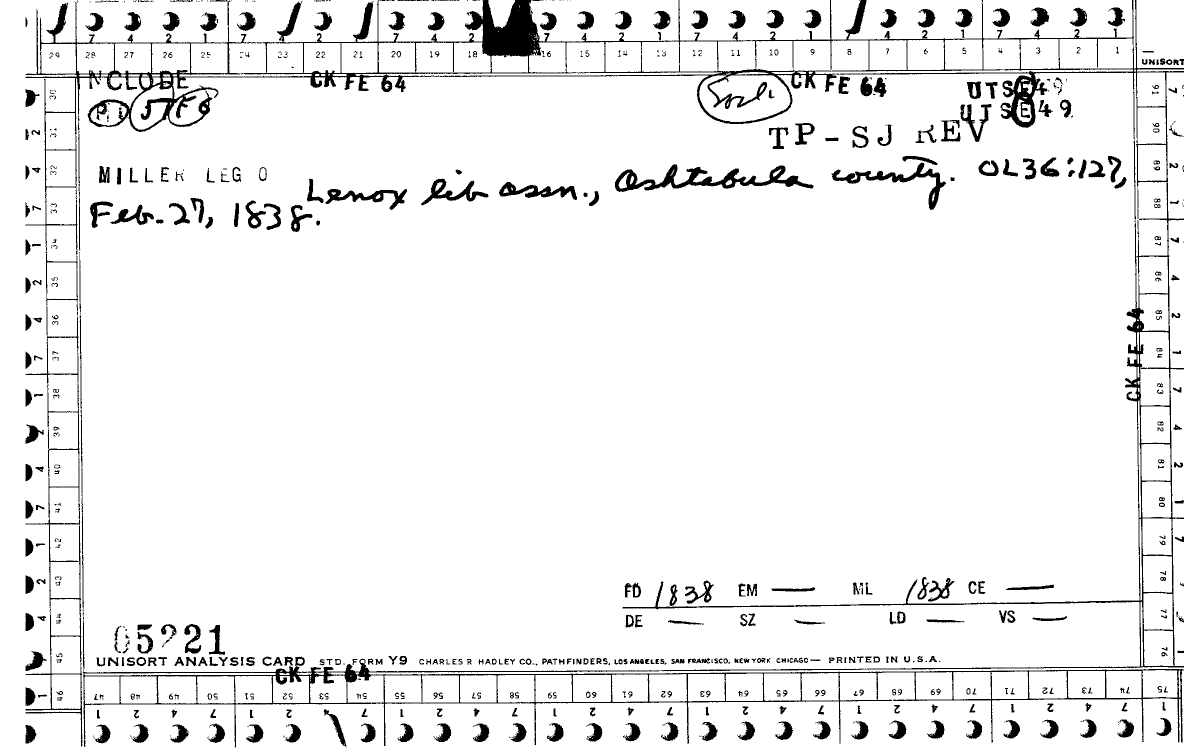 7 4 2 1 7 4 2 1 7 4 2 1 7 4 2 1 7 4 2 1 7 4 2 1
29 28 27 26 25 24 23 22 21 20 19 18 16 15 14 13 12 11 10 9 8 7 6 5 4 3 2 1
UNISORT
INCLUDE CK FE 64 CK FE 64 UTSE49
UTSE49
TP-SJ REV
MILLER LEG O Lenox lib assn., Ashtabula county. OL36:127,
Feb. 27, 1838.
CK FE 64
FD 1838 EM — ML 1838 CE —
DE — SZ — LD — VS —
05221
UNISORT ANALYSIS CARD STD. FORM Y9 CHARLES R HADLEY CO., PATHFINDERS, LOS ANGELES, SAN FRANCISCO, NEW YORK CHICAGO — PRINTED IN U.S.A.
CK FE 64
47 48 49 50 51 52 53 54 55 56 57 58 59 60 61 62 63 64 65 66 67 68 69 70 71 72 73 74 75
1 2 4 7 1 2 4 7 1 2 4 7 1 2 4 7 1 2 4 7 1 2 4 7 1 2 4 7 1